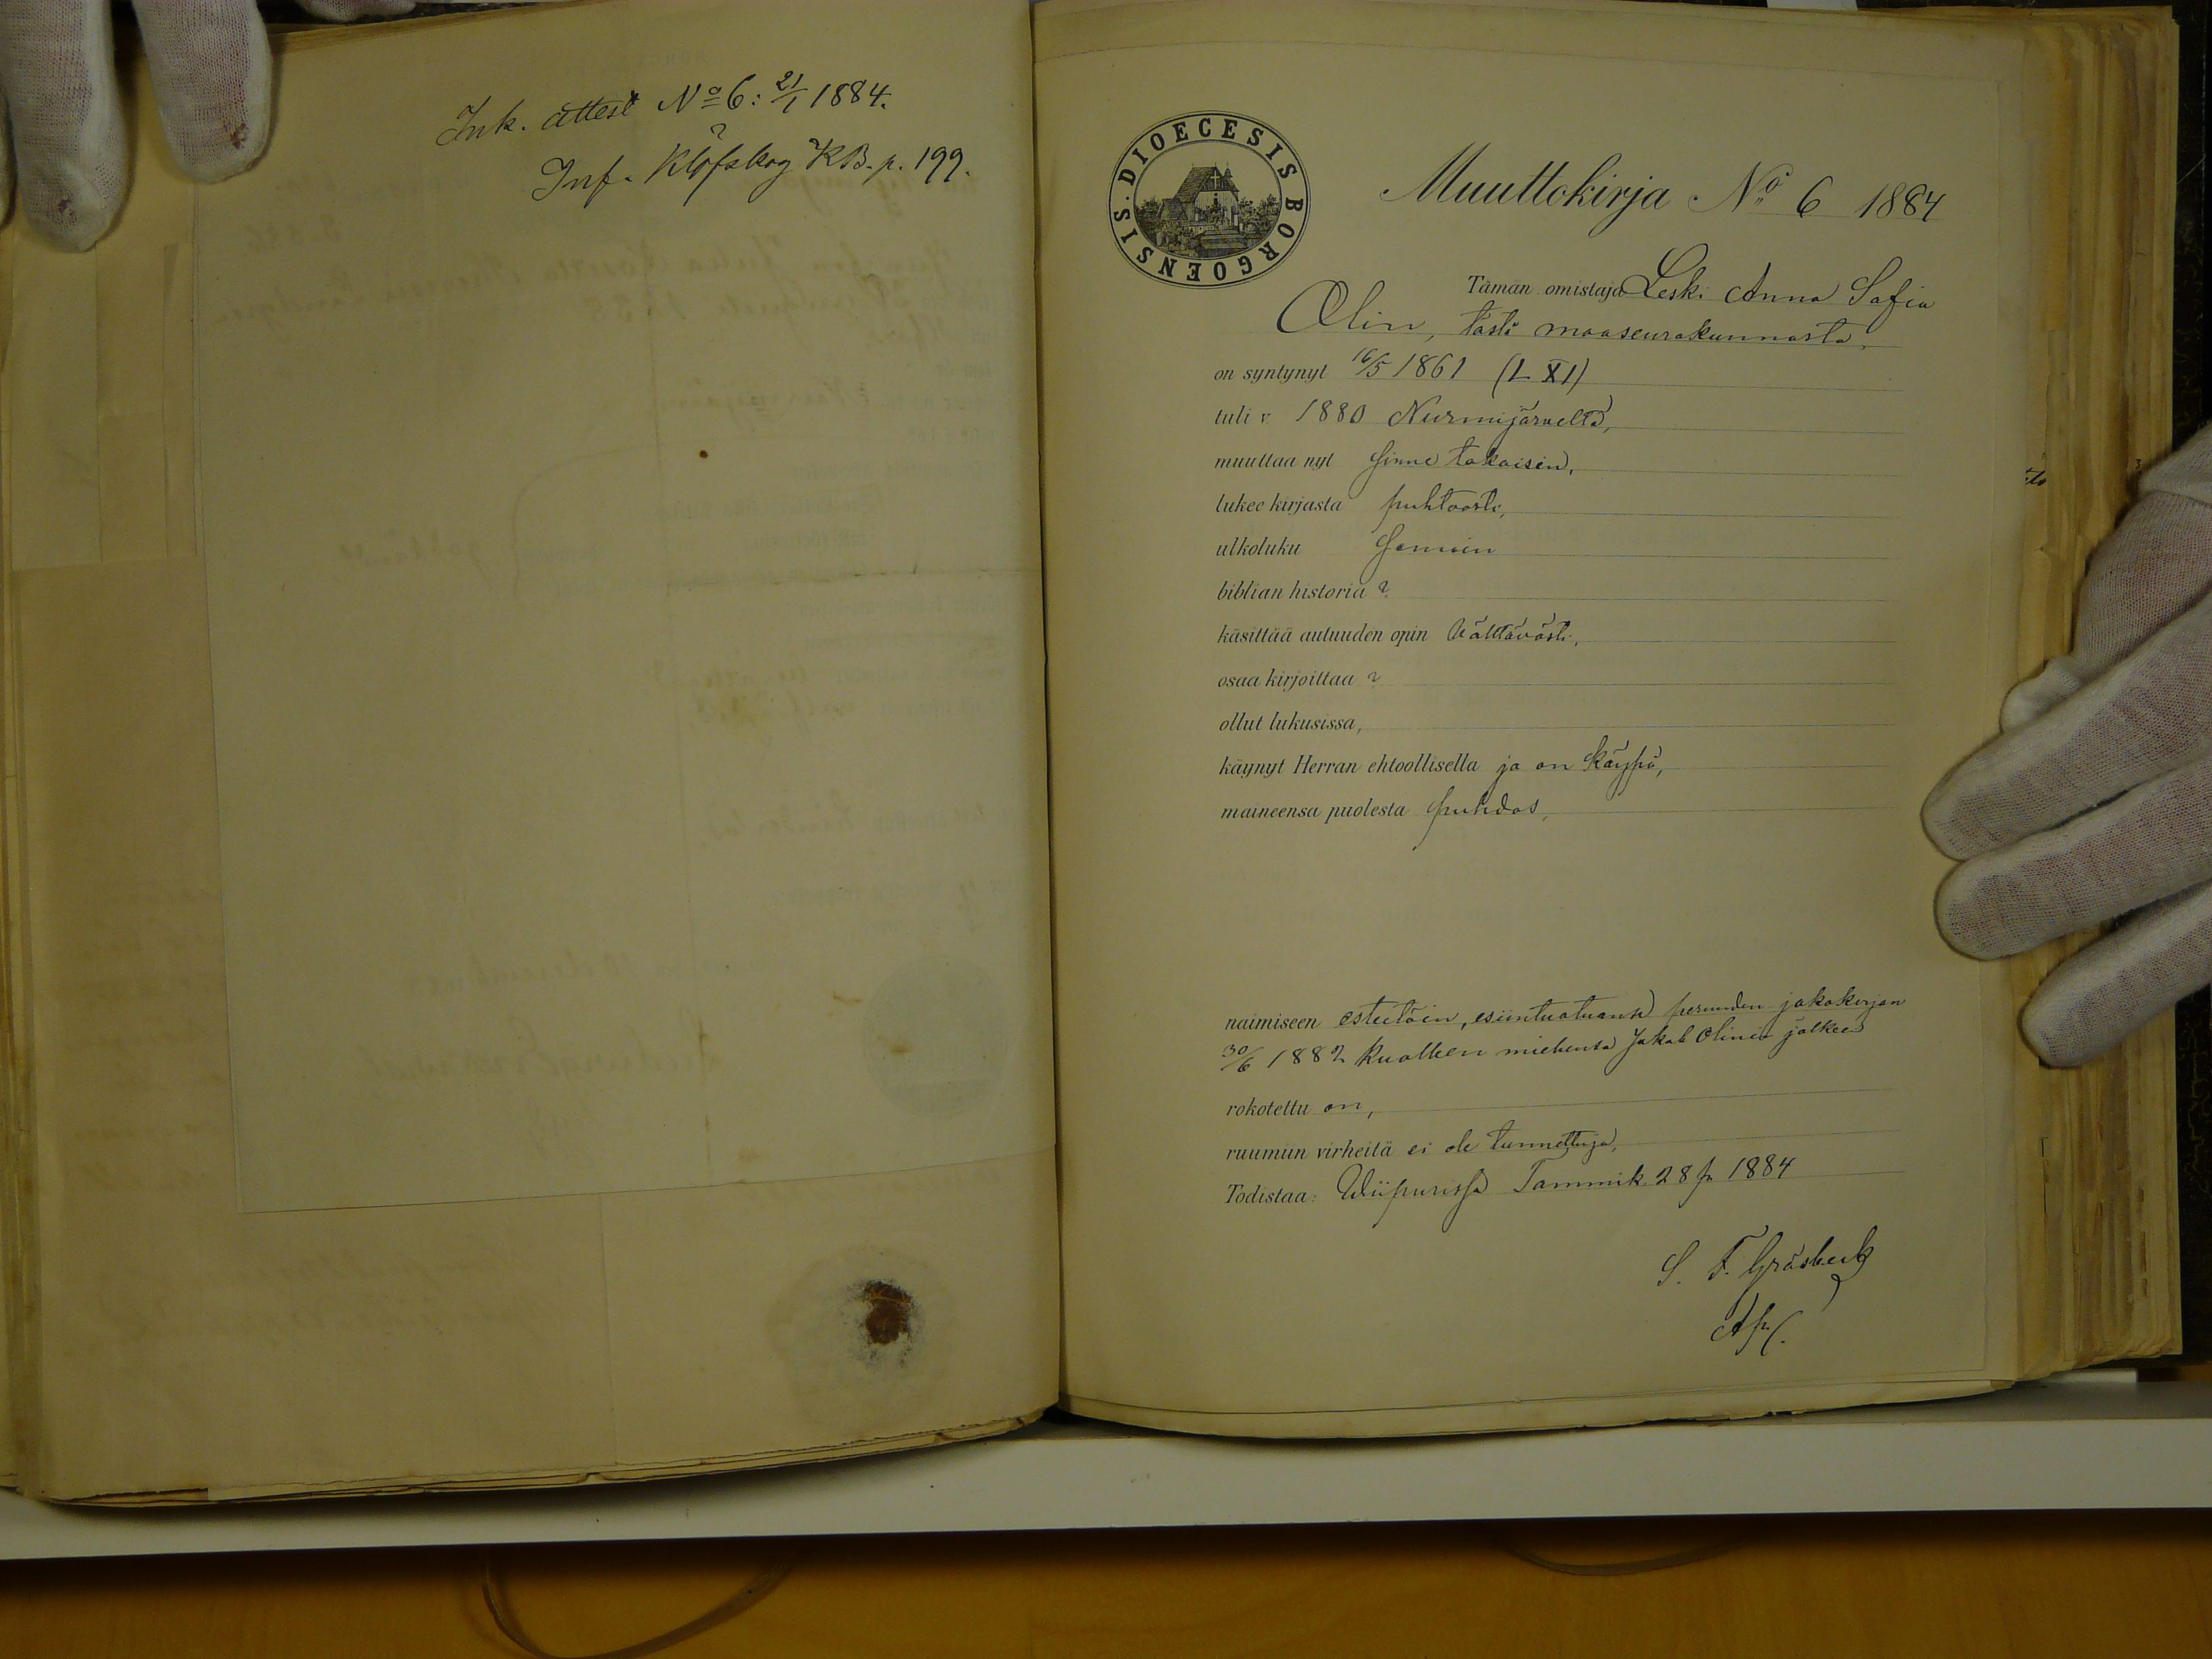 Ink. attest No 6: 21/1 1884.
Inf. Klöfskog KB. p. 199.
DIOECESIS BORGOENSIS.
Muuttokirja No 6 1884
Tämän omistaja Leski Anna Sofia
Olin, tästä maaseurakunnasta,
on syntynyt 16/5 1861 (L XI)
tuli v. 1880 Nurmijärveltä,
muuttaa nyt sinne takaisin,
lukee kirjasta puhtaasti,
ulkoluku samoin
biblian historia ?
käsittää autuuden opin välttävästi,
osaa kirjoittaa ?
ollut lukusissa,
käynyt Herran ehtoollisella ja on käypä,
maineensa puolesta puhdas,
naimiseen esteetöin, esiintuotuansa perunden jakokirjan
30/6 1882 kuolleen miehensä Jakob Olinin jälkeen
rokotettu on,
ruumiin virheitä ei ole tunnettuja,
Todistaa: Wiipurissa Tammik. 28 p. 1884
S. F. Gräsbeck